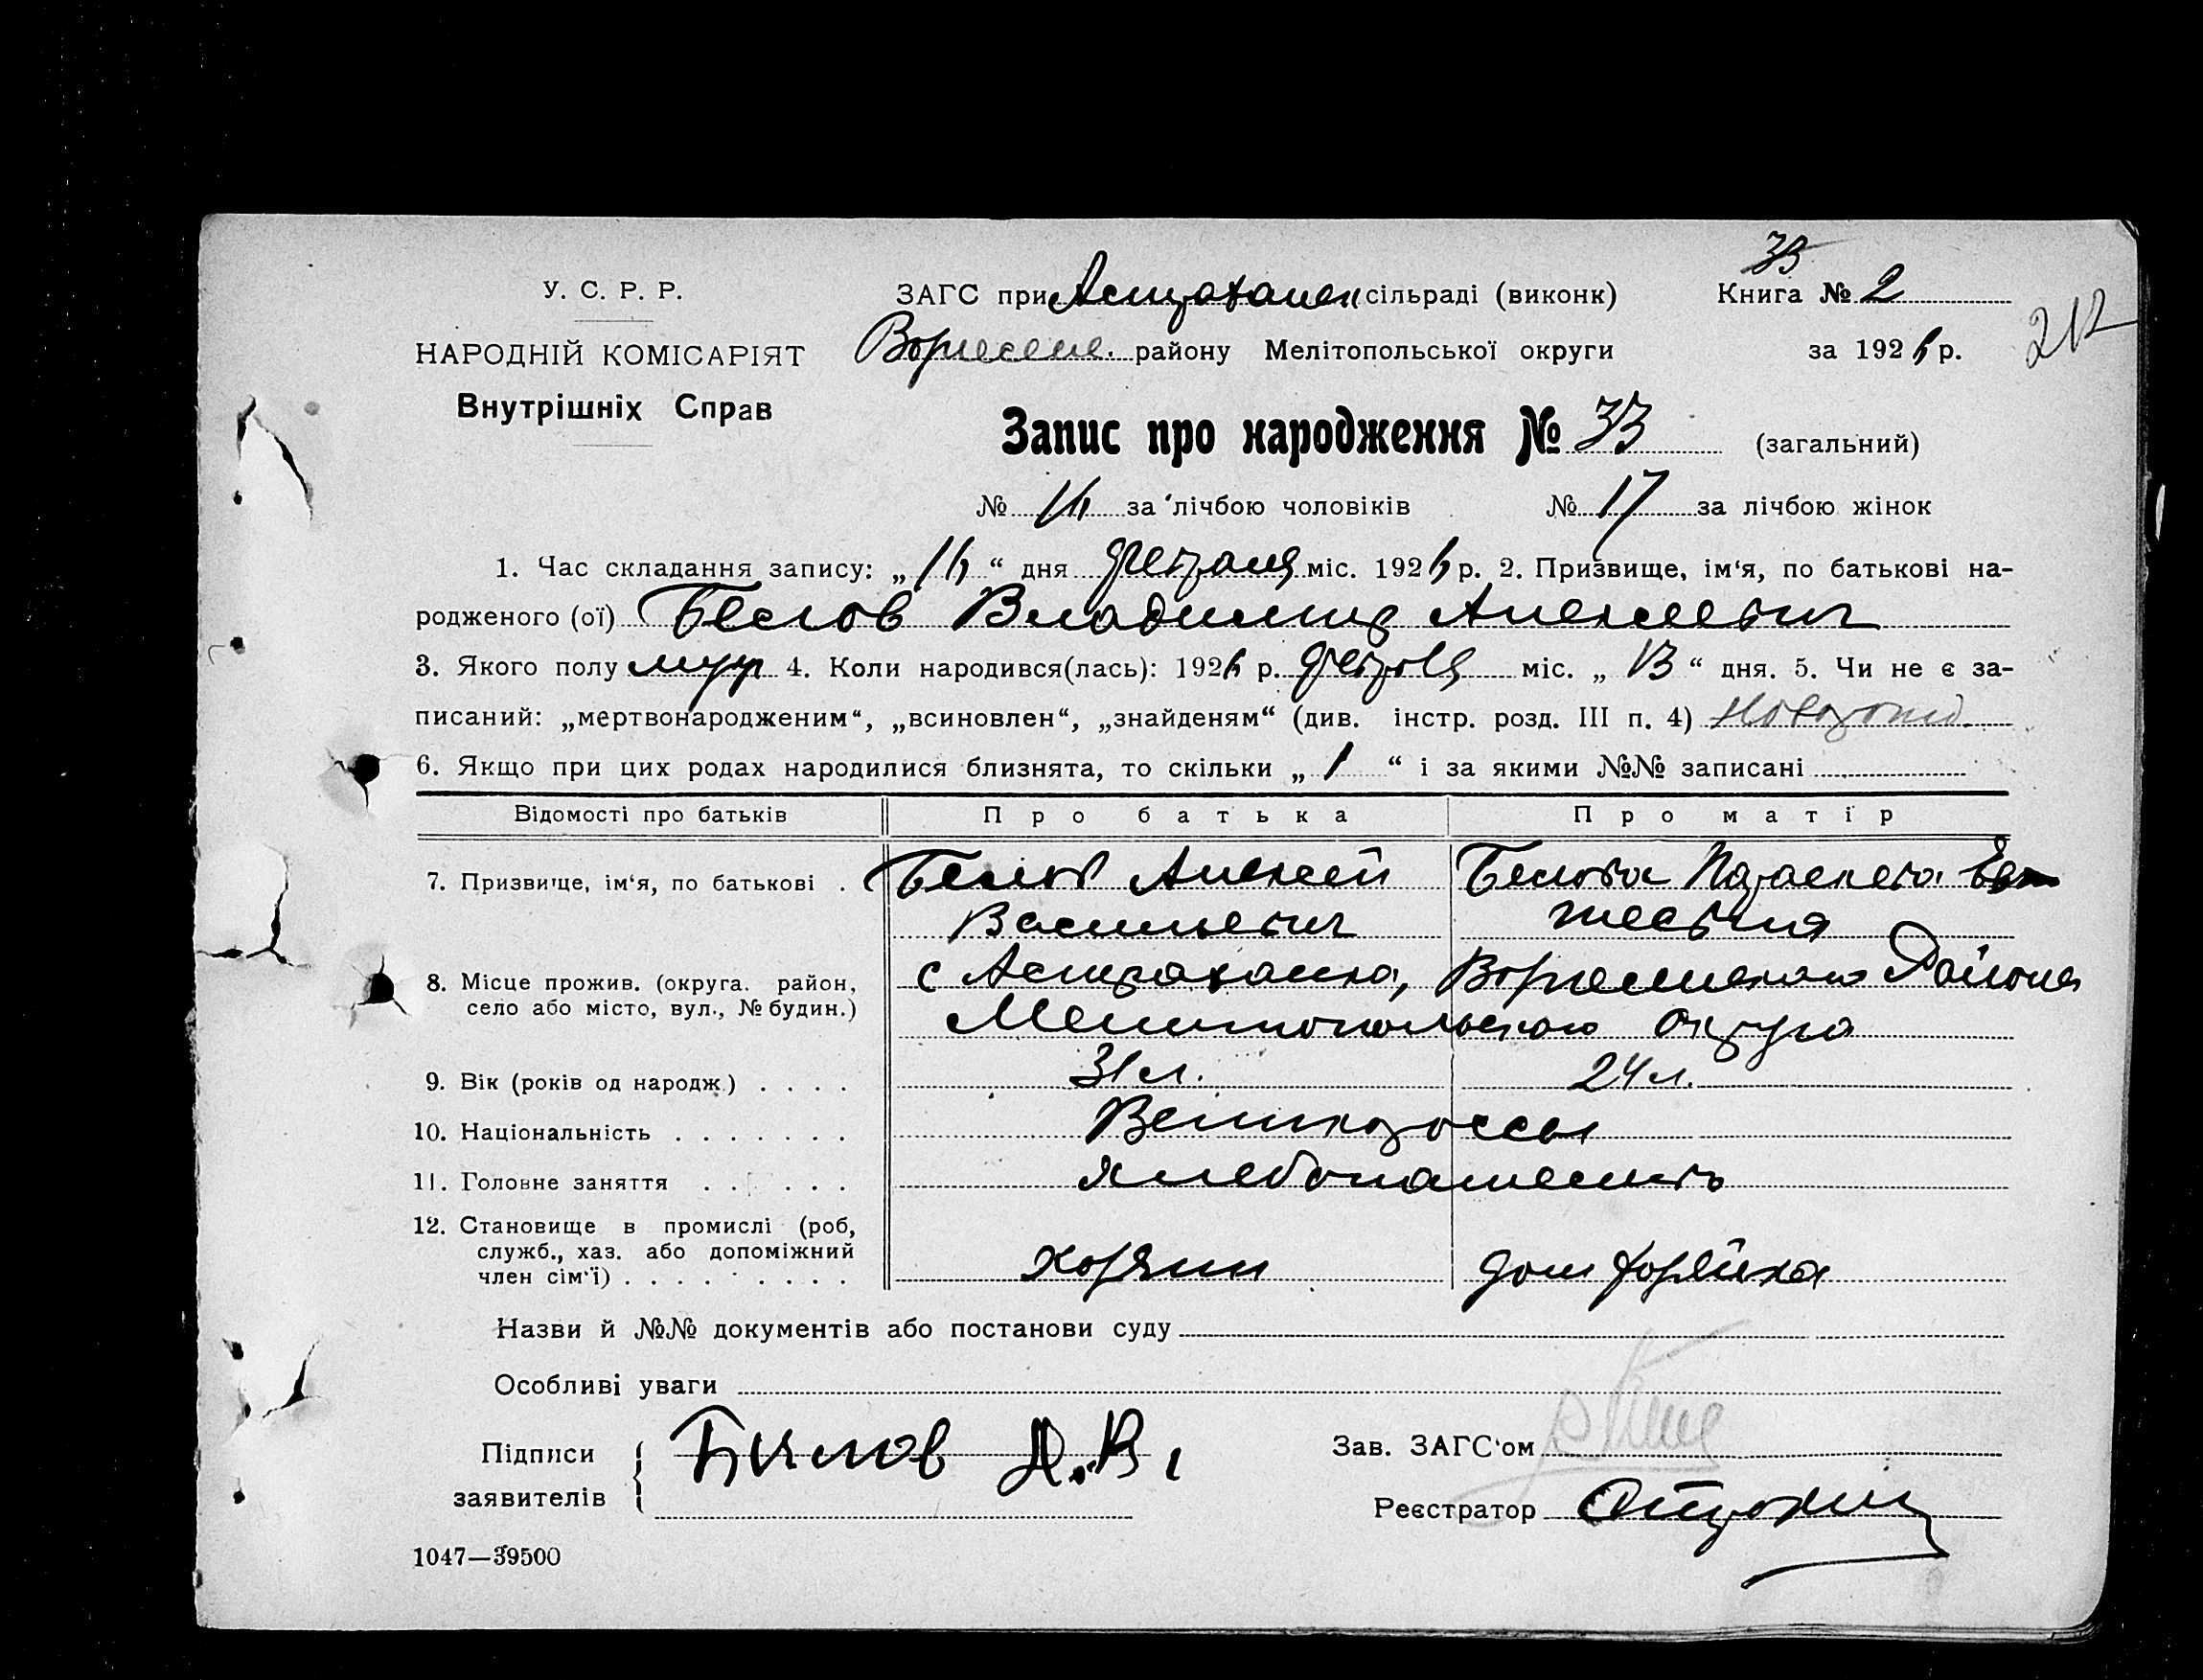 33
У. С. Р. Р.
ЗАГС при Астрахан сільраді (виконк)
Книга № 2
212
НАРОДНІЙ КОМІСАРІЯТ
района Мелітопольської округи
за 1926 р.
Внутрішніх Справ
Запис про народження № 33 (загальний)
№ 16 за лічбою чоловіків № 17 за лічбою жінок
1. Час складання запису: „16“ дня февраля міс. 1926 р. 2. Призвище, ім‘я, по батькові на-
родженого (ої) Белов Владимир Алексеевич
3. Якого полу муж 4. Коли народився(лась): 1926 р. февраля міс. „13“ дня. 5. Чи не є за-
писаний: „мертвонародженим“, „всиновлен“, „знайденям“ (див. інстр. розд. III п. 4)Новорожд.
6. Якщо при цих родах народилися близнята, то скільки „1“ і за якими №№ записані
Відомості про батьків Про батька Про матір
7. Призвище, ім‘я, по батькові . Белов Алексей Белова Парасковья
Васильевич
8. Місце прожив. (округа. район, с Астраханка, Района
село або місто, вул., № будин.) Мелитопольского округа
9. Вік (років од народж.) . . . . 31 л. 24 л.
10. Національність . . . . . . . Великороссы
11. Головне заняття . . . . . . хлебопашество
12. Становище в промислі (роб,
служб., хаз. або допоміжний
член сім‘ї) . . . . . . . . . хозяин дом хозяйка
Назви й №№ документів або постанови суду
Особливі уваги
Підписи Билов А.В.
заявителів
Зав. ЗАГС‘ом
Реєстратор
1047—39500